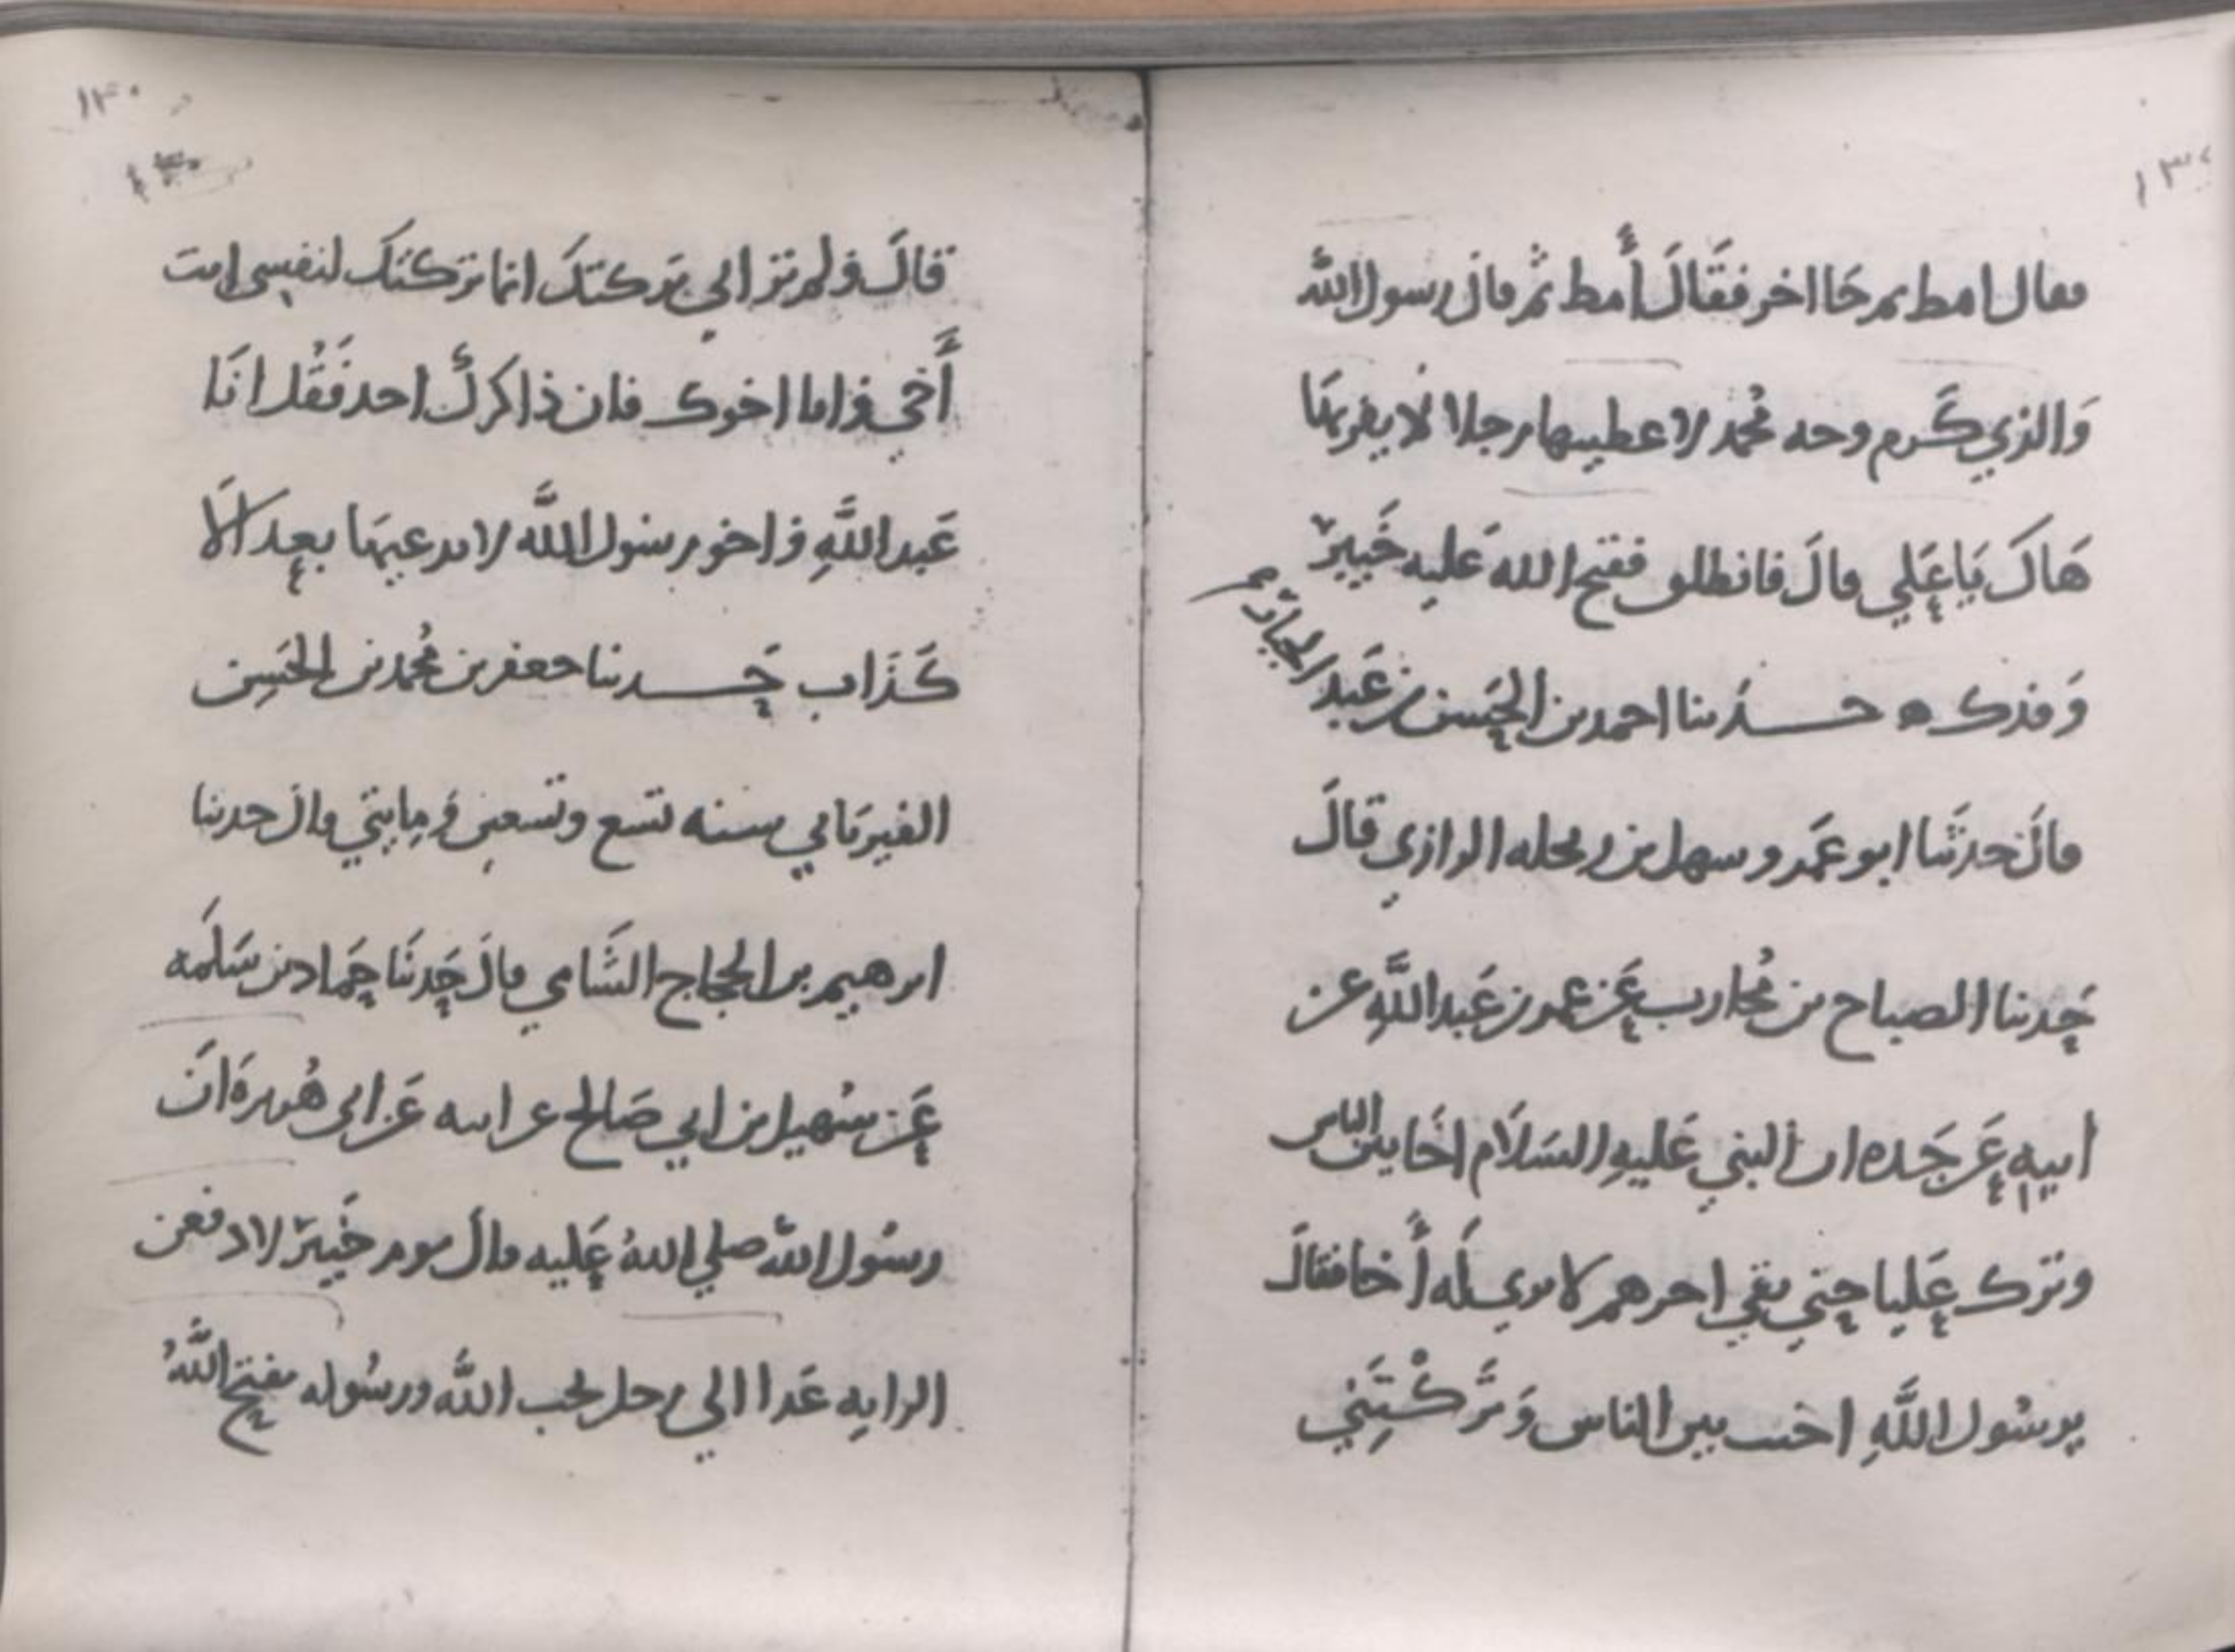 فقال امط ثم جا اخر فقَالَ أَمط ثم قال رسول الله
وَالذي كَرم وجه مُحمد لاعطينها رجلا لا يفر بهَا
هَاكَ يَا عَلي قالَ فانطلق ففتح الله عَليه خَيبر
وَفدك ه حدثنا احمد بن الحسَن بن عَبد الجبار
قالَ حدثَنا ابو عَمرو سهل بن زنجله الرازي قالَ
حَدثنا الصباح بن مُحارب عَن عمر بن عَبد اللَّهِ عن
ابيهِ عَن جَده ان النبي عَليهِ السَلَام اخَا بين الناس
وترك عَليا حتي بقي اخرهم لا يري لَه أَخا فقالَ
يرسُول اللَّهِ اخيت بين الناس وَتَرَكْتَنِي
قالَ ولم تراني تركتكَ انما تركتكَ لنفسي انت
أَخي وانا اخوك فان ذاكركَ احد فَقُل انَا
عَبد اللَّهِ واخو رسول اللَّه لا يدعيهَا بعدك الَا
كَذَاب حَدثنا جعفر بن مُحمد بن الحَسِن
الفيرَيابي سنه تسع وتسعين وَمايتي قال حدثنا
ابرهيم بن الحجاج الشَامي قالَ حَدثنَا حَماد بن سَلَمه
عَن سُهيل بن ابي صَالح عن ابيه عَن ابي هُريرَة انَ
رسُول الله صلي اللهُ عَليه قال يوم خَيبر لادفعن
الرايه غَدا الي رجل يحب اللَّه ورسُوله يفتح اللَّهُ